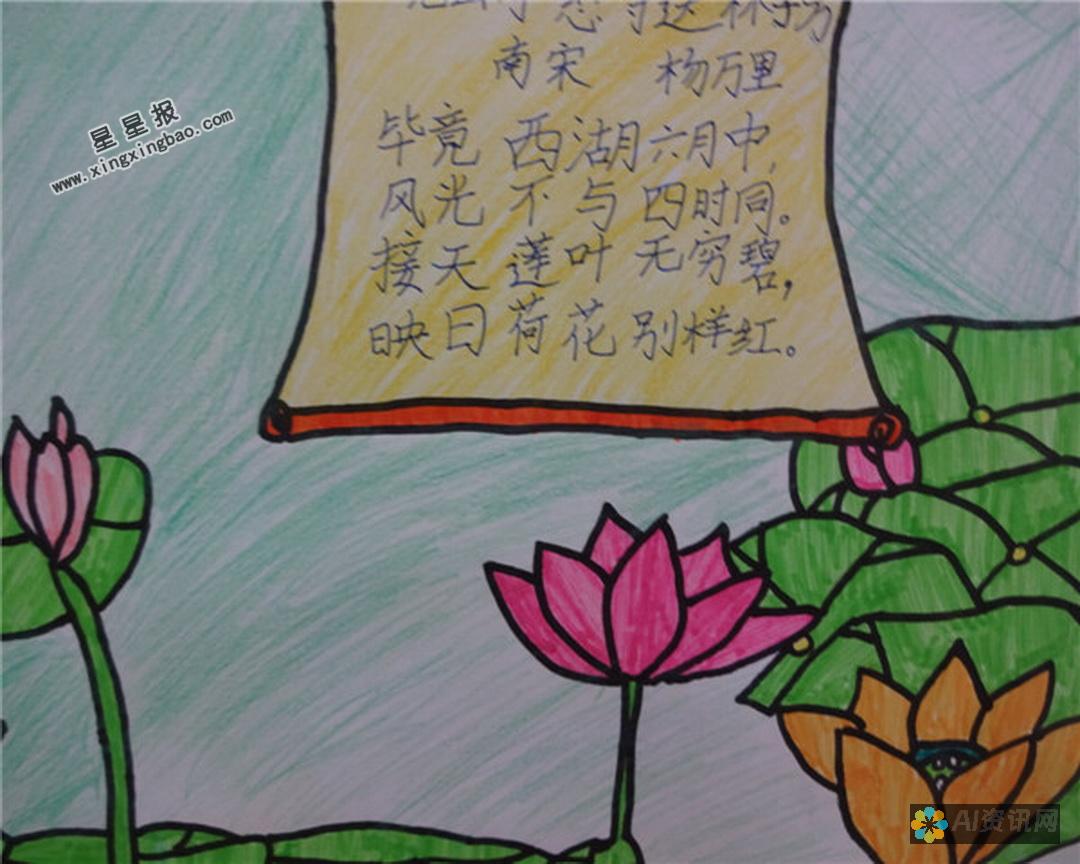 寺送林子方
南宋 杨万里
毕竟西湖六月中,
风光不与四时同。
接天莲叶无穷碧,
映日荷花别样红。
星星报
www.xingxingbao.com
AI资讯网